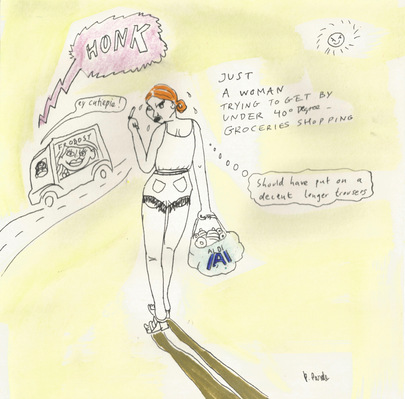 HONK
ey cutiepie!
ERDDOST
JUST
A WOMAN
TRYING TO GET BY
UNDER 40° Degree -
GROCERIES SHOPPING
Should have put on a
decent longer trousers
ALDI